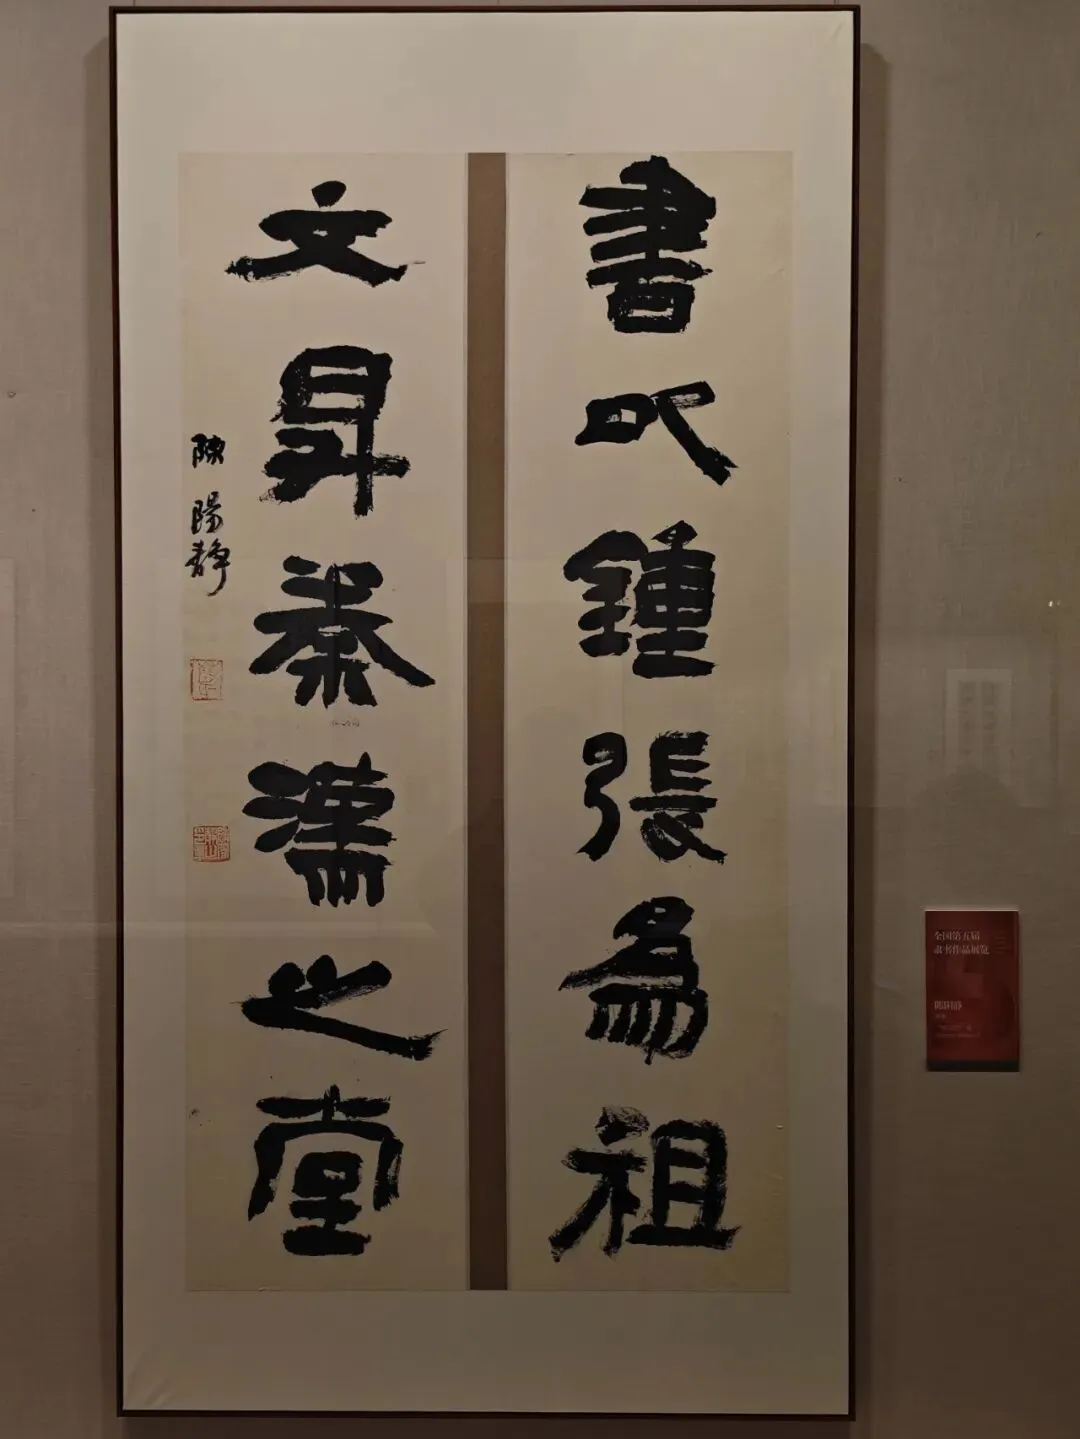 書以鍾張為祖
文昇秦漢之堂
陳陽静
全国第五届
隶书作品展览